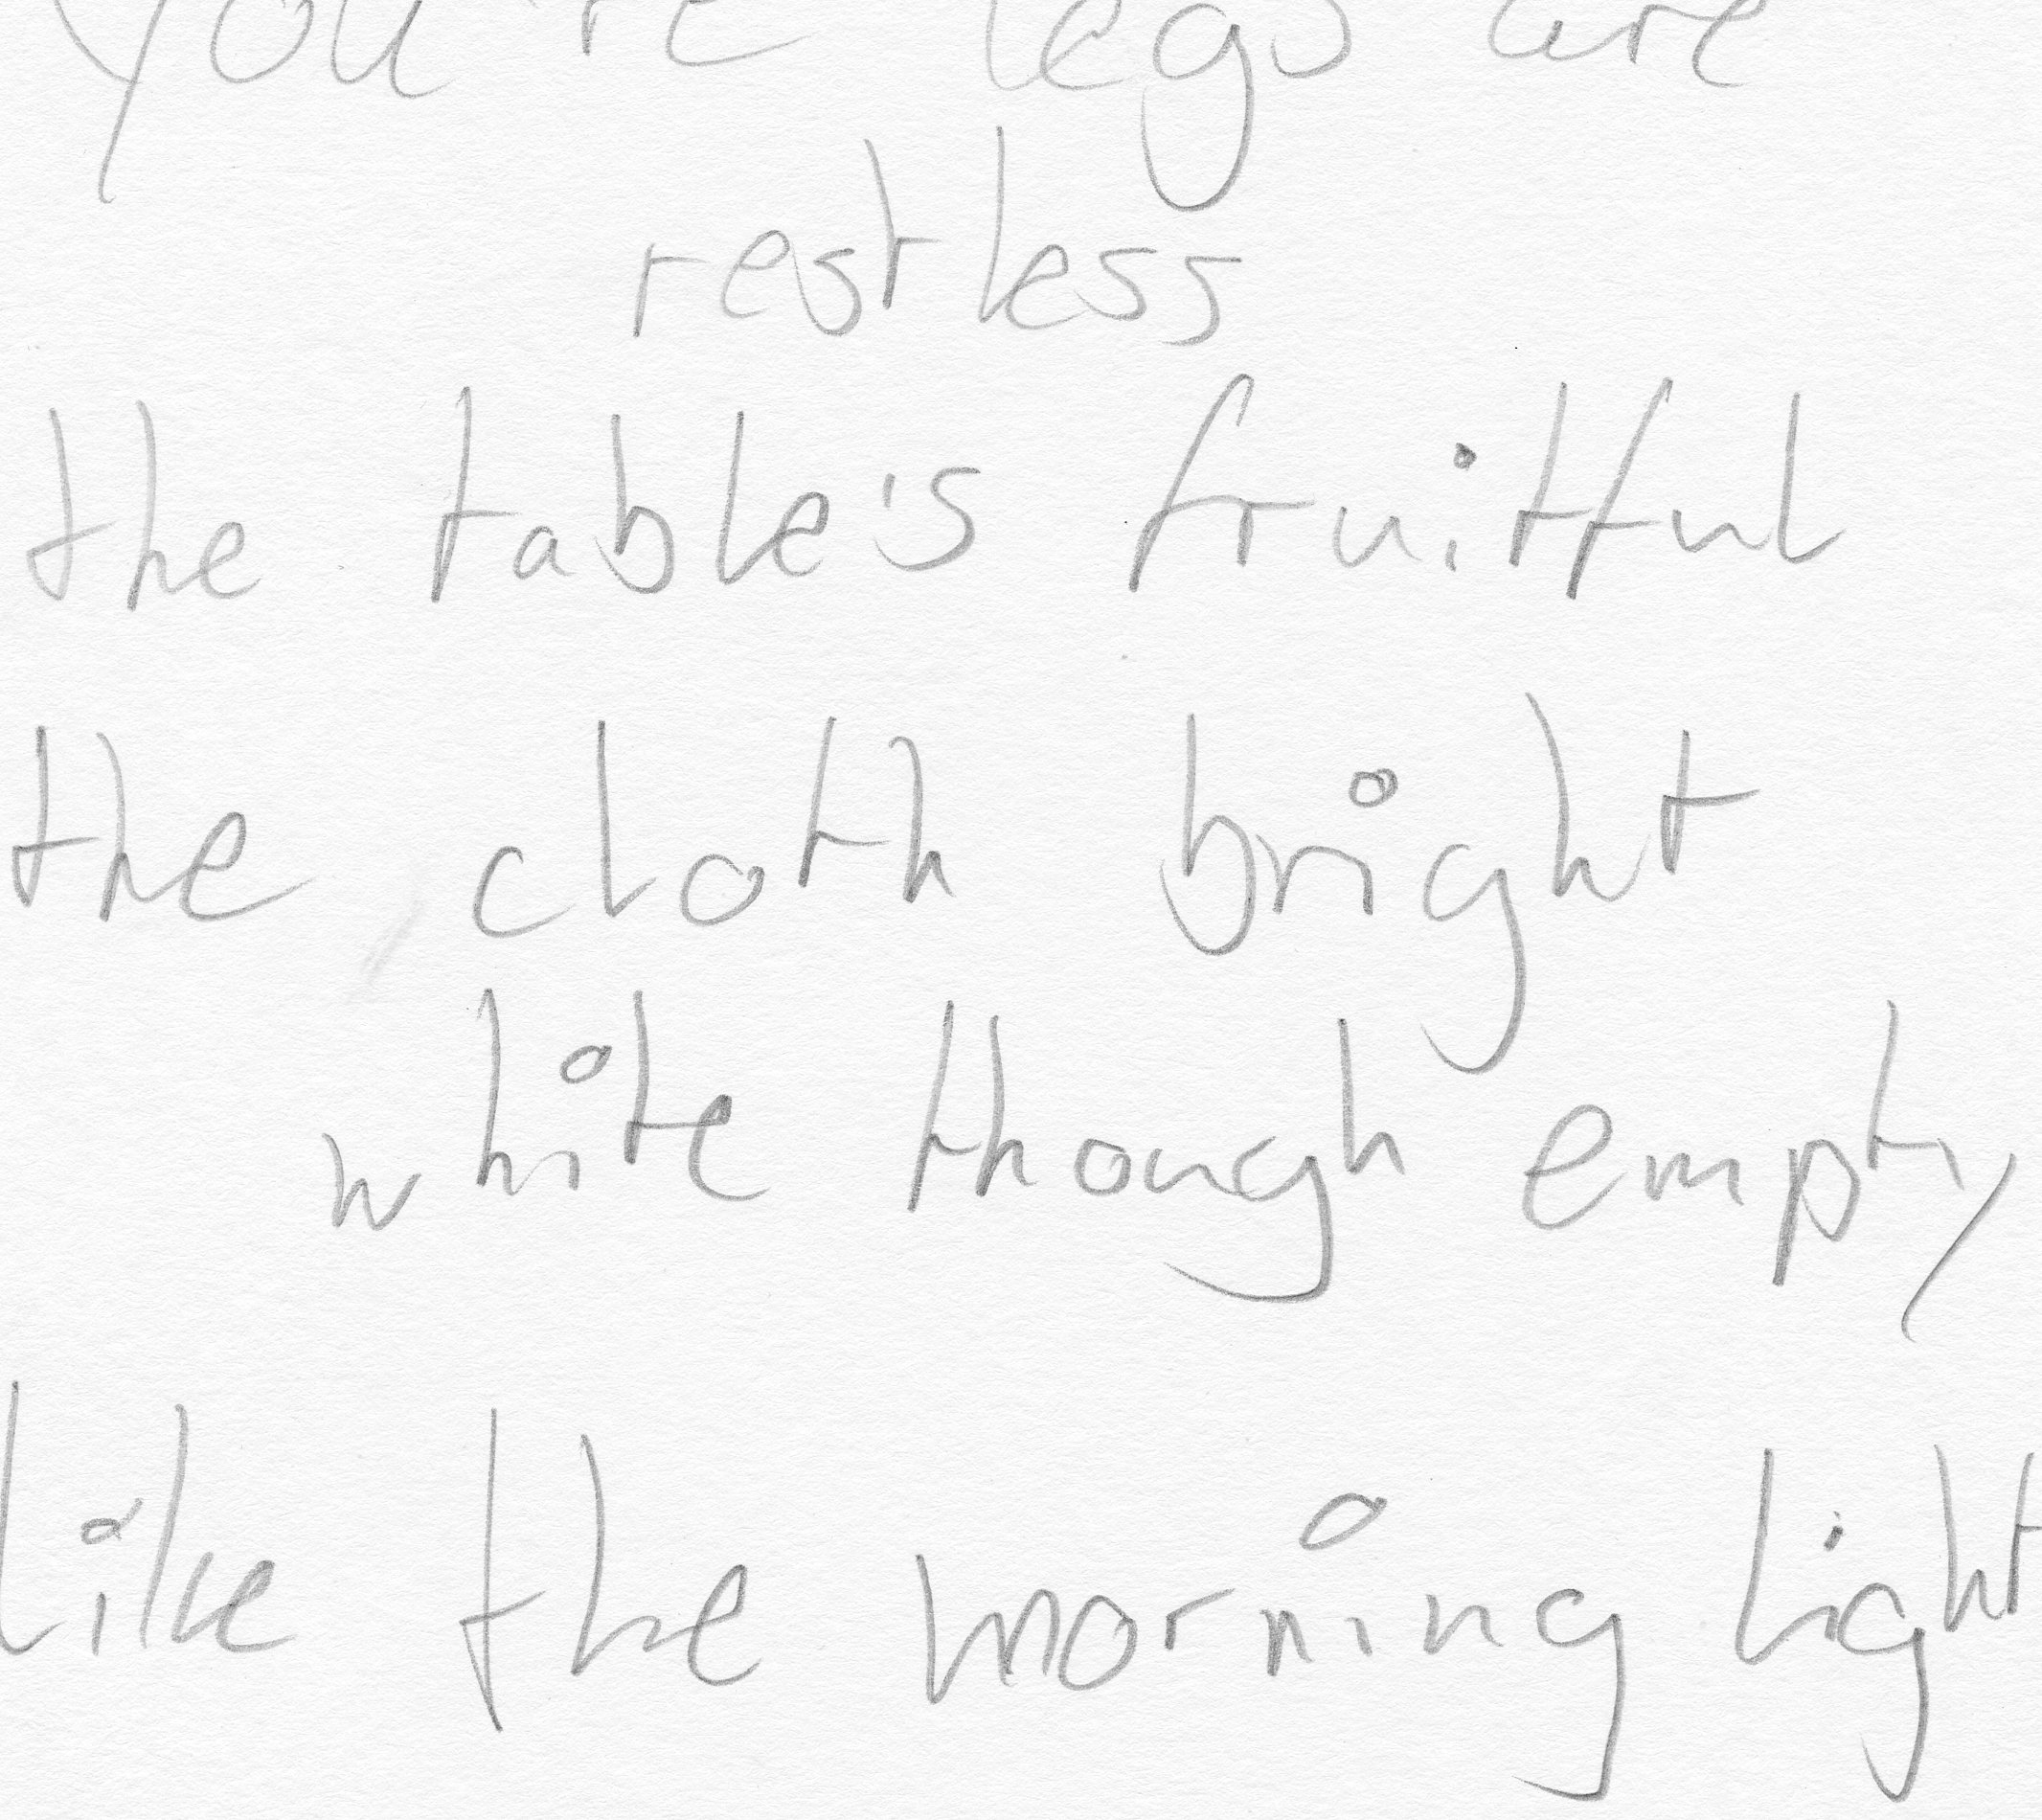 you're legs are
restless
the table's fruitful
the cloth bright
white though empty
like the morning light